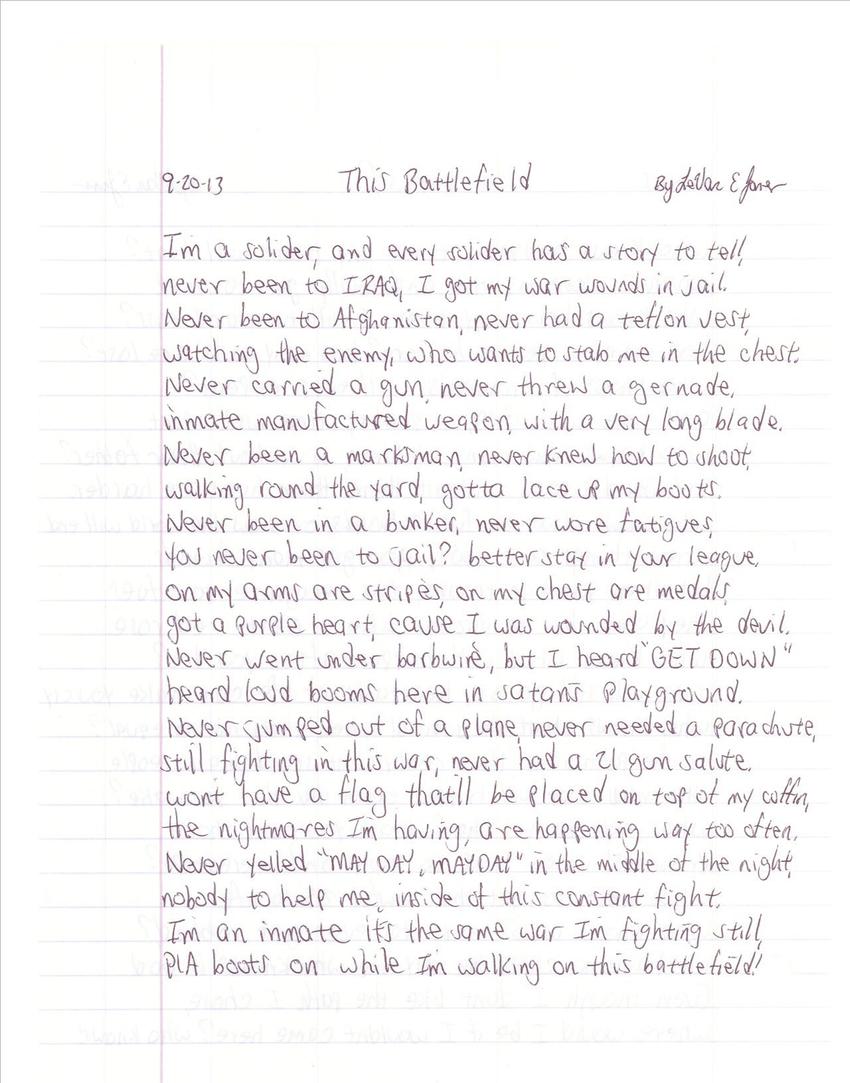 9-20-13 This Battlefield By LaVar E Jones
I'm a solider, and every solider has a story to tell,
never been to IRAQ, I got my war wounds in jail.
Never been to Afghanistan, never had a teflon vest,
watching the enemy, who wants to stab me in the chest.
Never carried a gun, never threw a gernade,
inmate manufactured weapon, with a very long blade.
Never been a marksman, never knew how to shoot,
walking round the yard, gotta lace up my boots.
Never been in a bunker, never wore fatigues,
you never been to jail? better stay in your league.
on my arms are stripes, on my chest are medals,
got a purple heart, cause I was wounded by the devil.
Never went under barbwire, but I heard "GET DOWN"
heard loud booms here in satan's playground.
Never jumped out of a plane, never needed a parachute,
still fighting in this war, never had a 21 gun salute.
won't have a flag that'll be placed on top of my coffin,
the nightmares I'm having, are happening way too often.
Never yelled "MAY DAY, MAYDAY" in the middle of the night,
nobody to help me, inside of this constant fight.
I'm an inmate it's the same war I'm fighting still,
PIA boots on while I'm walking on this battlefield!